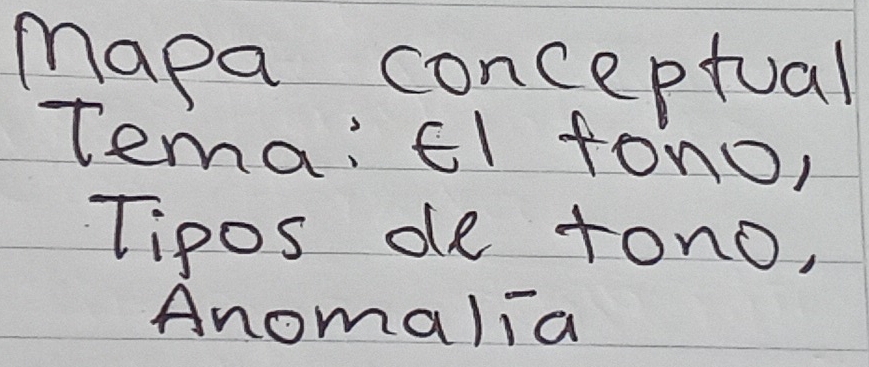 Mapa conceptual
Tema: El tono,
Tipos de tono,
Anomalía